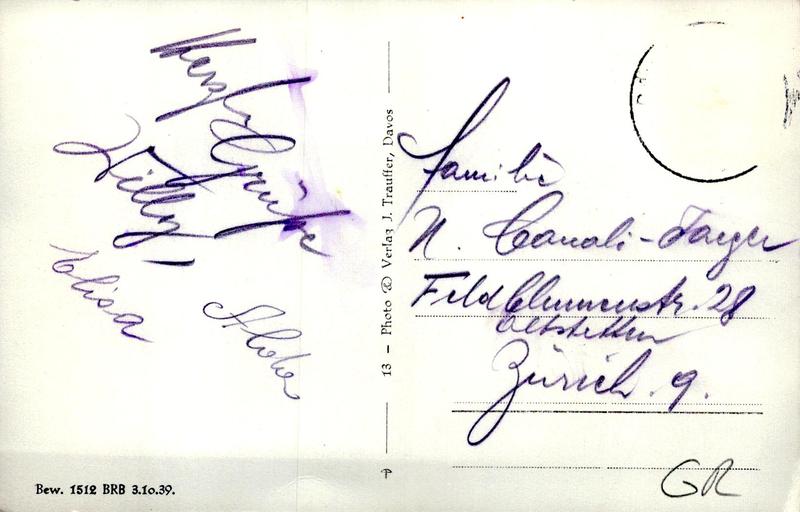 Herzl.
Grüße
Willy
Elisa
13 – Photo © Verlag J. Trauffer, Davos
Familie
N.
Feldblumenstr. 28
Altstetten
Zürich. 9.
GR
Bew. 1512 BRB 3.10.39.